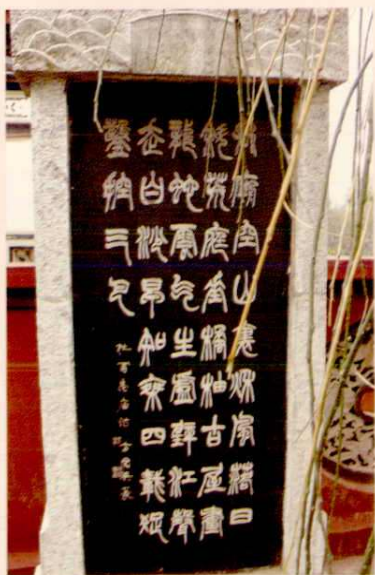 禹廟空山裏秋風落日
斜荒庭垂橘柚古屋畫
龍蛇雲气生虛壁江聲
走白沙早知乘四載疏
鑿控三巴
杜甫禹廟诗